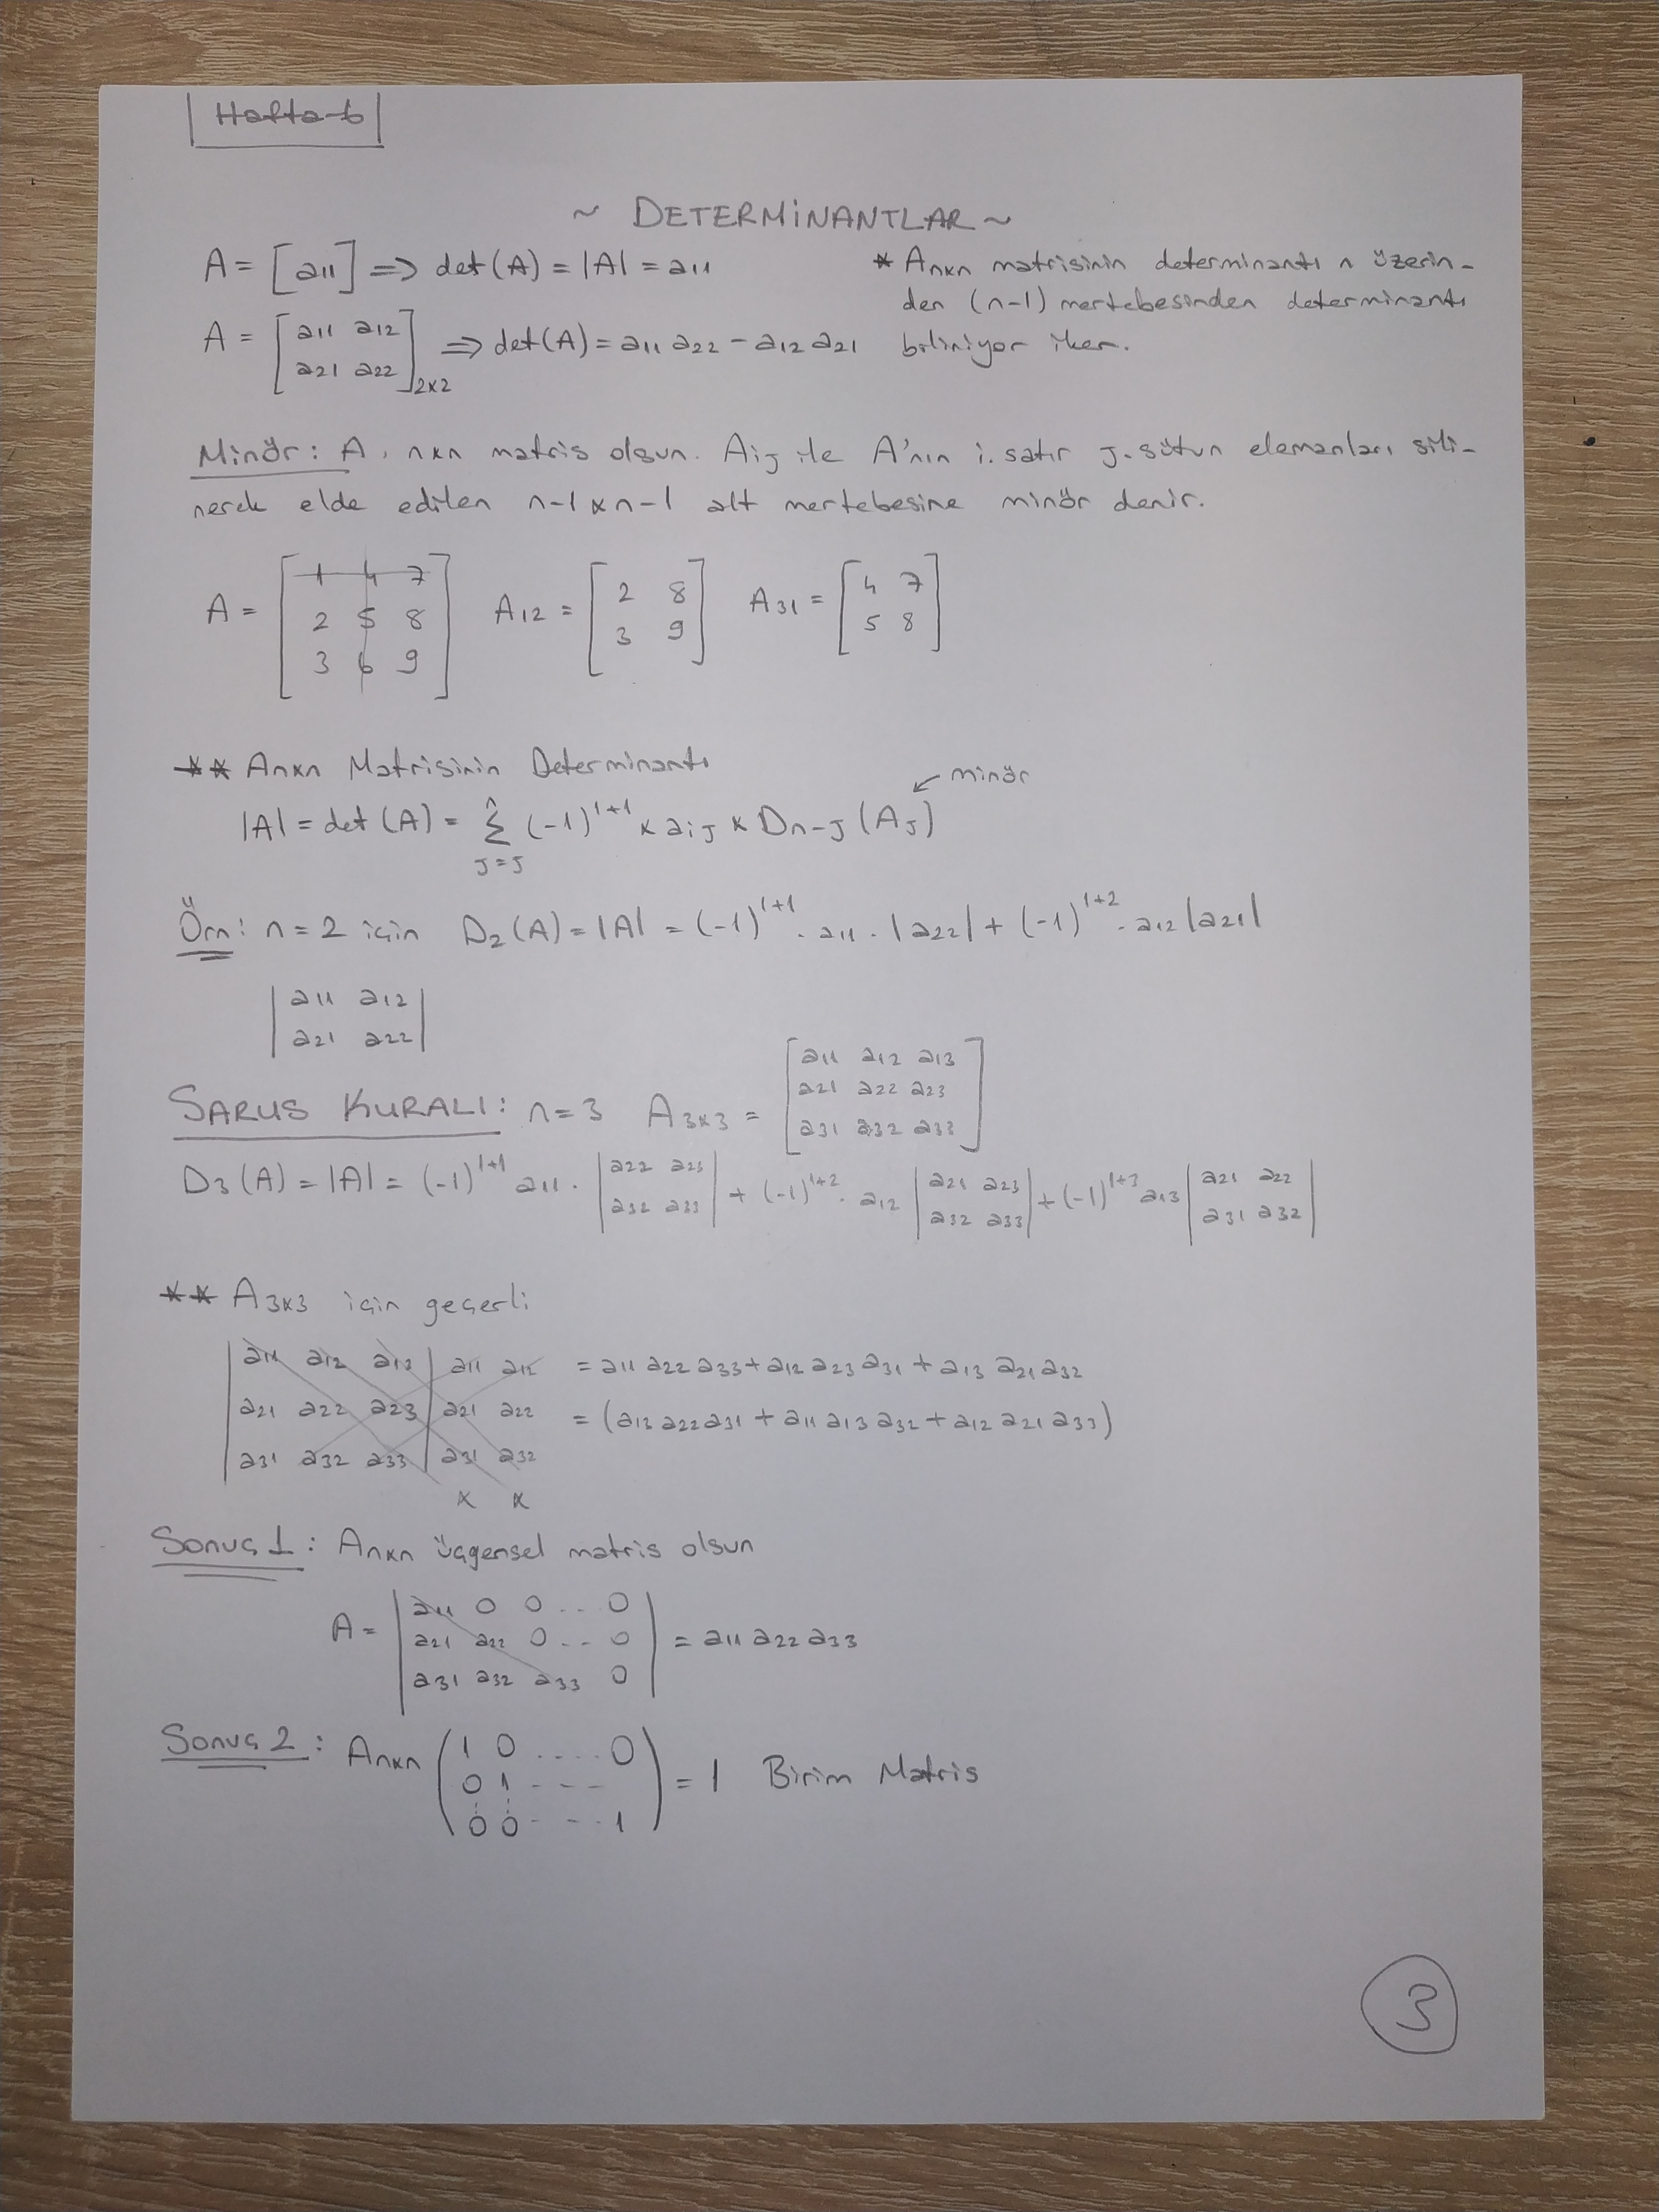 Hafta-6
~ DETERMİNANTLAR ~
A = [a11] => det(A) = |A| = a11
* Anxn matrisinin determinantı n üzerin-
den (n-1) mertebesinden determinantı
biliniyor iken.
A = [a11 a12
a21 a22]2x2 => det(A) = a11 a22 - a12 a21
Minör: A, nxn matris olsun. Aij ile A'nın i. satır J. sütun elemanları sili-
nerek elde edilen n-1 x n-1 alt mertebesine minör denir.
A = [1 4 7
2 5 8
3 6 9]
A12 = [2 8
3 9]
A31 = [4 7
5 8]
** Anxn Matrisinin Determinantı
|A| = det(A) = Σ (-1)^1+1 x aij x Dn-J (AJ) ← minör
J=J
Örn: n=2 için D2(A) = |A| = (-1)^1+1 . a11 . |a22| + (-1)^1+2 . a12 |a21|
|a11 a12|
|a21 a22|
SARUS KURALI: n=3 A3x3 = [a11 a12 a13
a21 a22 a23
a31 a32 a33]
D3(A) = |A| = (-1)^1+1 a11 . |a22 a23
a32 a33| + (-1)^1+2 . a12 |a21 a23
a32 a33| + (-1)^1+3 a13 |a21 a22
a31 a32|
** A3x3 için geçerli
|a11 a12 a13| a11 a12 = a11 a22 a33 + a12 a23 a31 + a13 a21 a32
|a21 a22 a23| a21 a22 = (a13 a22 a31 + a11 a13 a32 + a12 a21 a33)
|a31 a32 a33| a31 a32
x x
Sonuç 1: Anxn üçgensel matris olsun
A = |a11 0 0 .. 0
a21 a22 0 .. 0
a31 a32 a33 0| = a11 a22 a33
Sonuç 2: Anxn (1 0 .... 0
0 1 - - -
0 0 - - . 1) = 1 Birim Matris
3